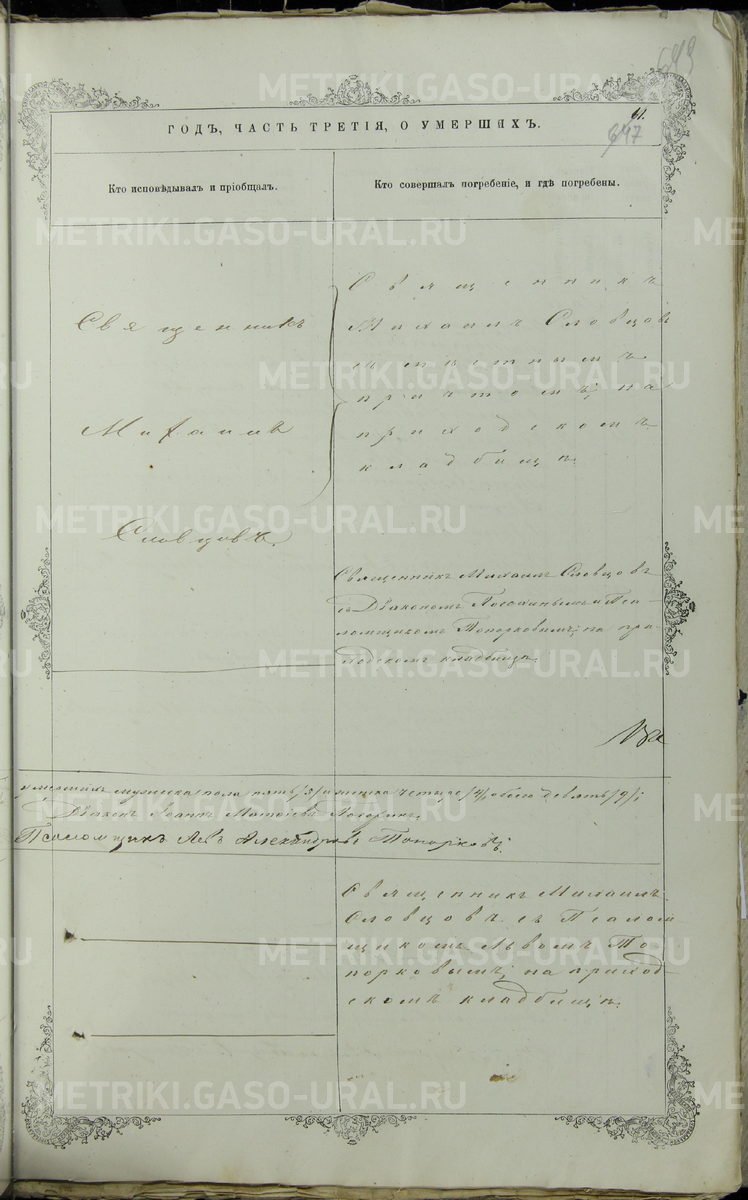 643
61.
647
ГОДЪ, ЧАСТЬ ТРЕТІЯ, О УМЕРШИХЪ.
Кто исповѣдывалъ и пріобщалъ.
Кто совершалъ погребеніе, и гдѣ погребены.
Священникъ
Михаилъ
Словцовъ.
Священникъ
Михаилъ Словцовъ
съ
причтомъ; на
приходскомъ
кладбищѣ.
Священникъ Михаилъ Словцовъ
съ Діакономъ и Пса-
ломщикомъ Топорковымъ; на при-
ходскомъ кладбищѣ.
умершихъ мужеска пола пять /5/ и женска четыре /4/, обоего девять /9/;
Діаконъ Іоаннъ
Псаломщикъ Левъ Александровъ Топорковъ.
Священникъ Михаилъ
Словцовъ съ Псалом
щикомъ Львомъ То
порковымъ; на приход-
скомъ кладбищѣ.
METRIKI.GASO-URAL.RU